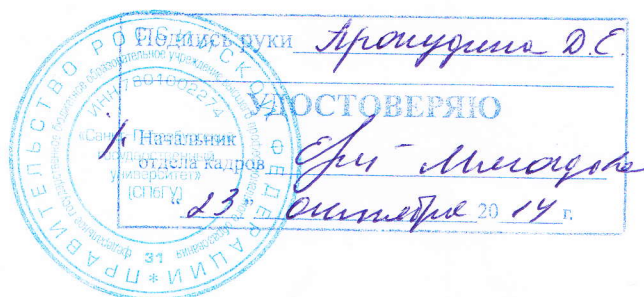 Подпись руки Прокудина Д.Е
УДОСТОВЕРЯЮ
Начальник
отдела кадров
"23" октября 2014 г.
ПРАВИТЕЛЬСТВО РОССИЙСКОЙ ФЕДЕРАЦИИ *
ИНН 7801002274
«Санкт-Петербургский
государственный
университет»
(СПбГУ)
31